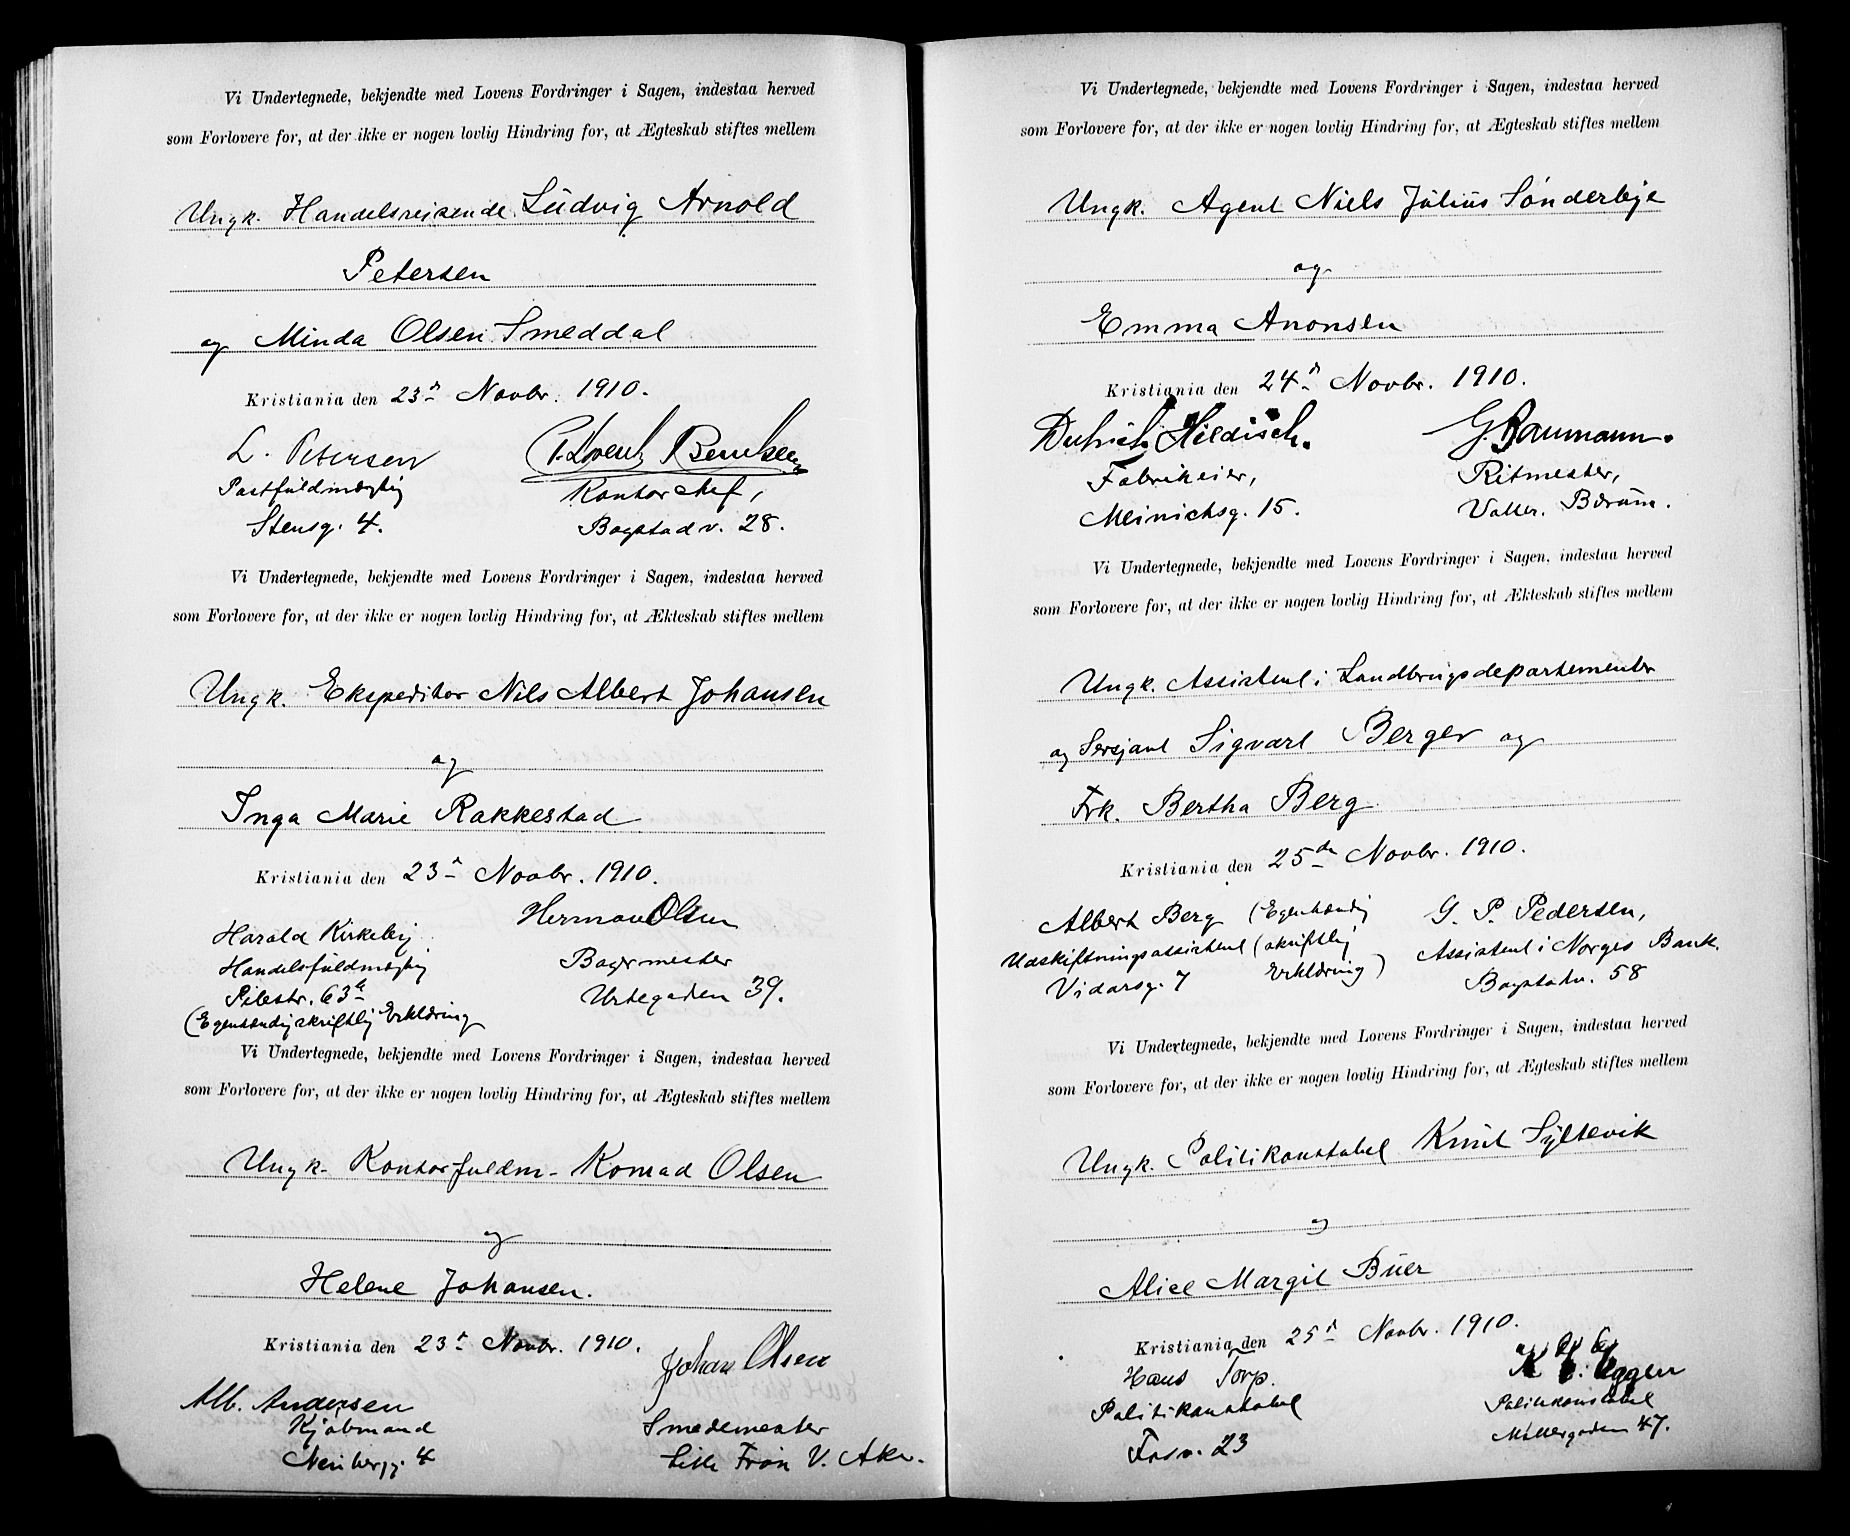 Vi Undertegnede, bekjendte med Lovens Fordringer i Sagen, indestaa herved
som Forlovere for, at der ikke er nogen lovlig Hindring for, at Ægteskab stiftes mellem
Ungk. Handelsreisende Ludvig Arnold
Petersen
og Minda Olsen Smeddal
Kristiania den 23 Novbr. 1910.
L. Petersen
Postfuldmægtig
Stensg. 4.
Kontorchef,
Bogstadv. 28.
Vi Undertegnede, bekjendte med Lovens Fordringer i Sagen, indestaa herved
som Forlovere for, at der ikke er nogen lovlig Hindring for, at Ækteskab stiftes mellem
Ungk. Ekspeditør Nils Albert Johansen
og
Inga Marie Rakkestad
Kristiania den 23 Novbr. 1910.
Harald Kirkeby
Handelsfuldmægtig
Pilestr. 63
(Egenhændig skriftlig Erklæring
Herman Olsen
Bagermester
Urtegaden 39.
Vi Undertegnede, bekjendte med Lovens Fordringer i Sagen, indestaa herved
som Forlovere for, at der ikke er nogen lovlig Hindring for, at Ægteskab stiftes mellem
Ungk. Kontorfuldm. Konrad Olsen
og
Helene Johansen.
Kristiania den 23 Novbr. 1910.
Alb. Andersen
Kjøbmand
4
Johan Olsen
Smedemester
Lille Frøn V. Aker.
Vi Undertegnede, bekjendte med Lovens Fordringer i Sagen, indestaa herved
som Forlovere for, at der ikke er nogen lovlig Hindring for, at Ægteskab stiftes mellem
Ungk. Agent Niels Julius Sønderbye
og
Emma Aronsen
Kristiania den 24 Novbr. 1910.
Hildisch.
Fabrikeier,
Meinichsg. 15.
G. Baumann.
Ritmester,
Valler. Bærum.
Vi Undertegnede, bekjendte med Lovens Fordringer i Sagen, indestaa herved
som Forlovere for, at der ikke er nogen lovlig Hindring for, at Ækteskab stiftes mellem
Ungk. Assistent i Landbrugsdepartementet
og Sersjant Sigvart Berger og
Frk. Bertha Berg
Kristiania den 25de Novbr. 1910.
Albert Berg (Egenhændig
Udskiftningsassistent (skriftlig
Vidarsg. 7 Erklæring)
G. P. Pedersen,
Assistent i Norges Bank.
Bogstadv. 58
Vi Undertegnede, bekjendte med Lovens Fordringer i Sagen, indestaa herved
som Forlovere for, at der ikke er nogen lovlig Hindring for, at Ægteskab stiftes mellem
Ungk. Politikonstabel Knut Syltevik
og
Alice Margit Buer
Kristiania den 25 Novbr. 1910.
Hans Torp.
Politikonstabel
Fosv. 23
K Eggen
Politikonstabel
Møllergaden 47.